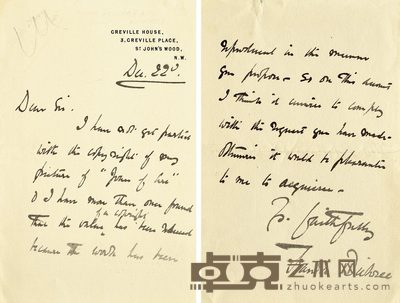 GREVILLE HOUSE,
3, GREVILLE PLACE,
ST JOHN'S WOOD,
N.W.
Dec. 22d.
Dear Sir.
I have not yet parted
with the copyright of my
picture of "Joan of Arc"
& I have more than once found
of a copyright
that the value has been reduced
because the work has been
reproduced in the manner
you propose – So on this account
I think it unwise to comply
with the request you have made.
Otherwise it would be pleasanter
to me to acquiesce –
Yrs faithfully
Frank Dicksee
卓克艺术网
zhuokearts.com